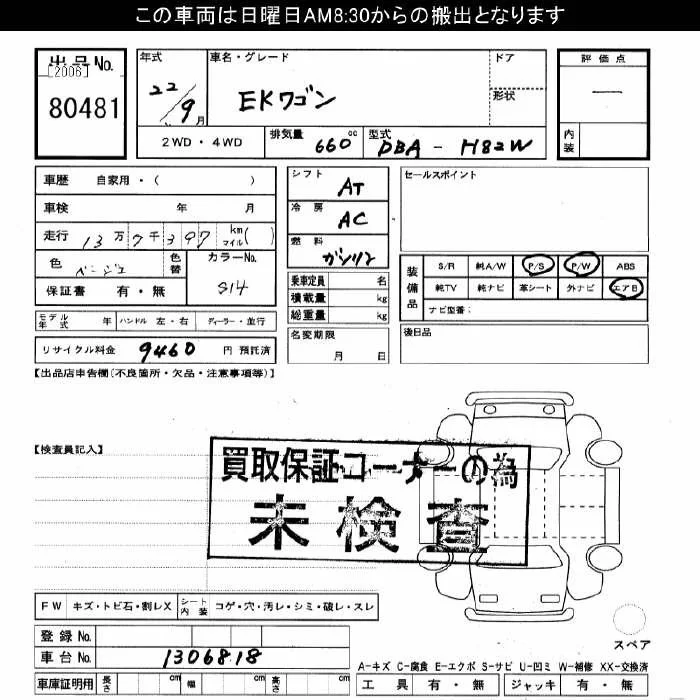 この車両は日曜日AM8:30からの搬出となります
出品No. 年式 車名・グレード ドア 評価点
[2006]
80481 22/9月 EKワゴン 形状 一
2WD・4WD 排気量 660cc 型式 DBA-H82W 内装
車歴 自家用・( ) シフト AT セールスポイント
車検 年 月 冷房 AC
走行 13万7千397 km マイル( ) 燃料 ガソリン
色 ベージュ 色替 カラーNo. S14 装備品 S/R 純A/W P/S P/W ABS
保証書 有・無 乗車定員 名 純TV 純ナビ 革シート 外ナビ エアB
積載量 kg ナビ型番:
総重量 kg
モデル年式 年 ハンドル 左・右 ディーラー・並行 名変期限 月 日 後日品
リサイクル料金 9460 円 預託済
【出品店申告欄(不良箇所・欠品・注意事項等)】
【検査員記入】
買取保証コーナーの為
未検査
FW キズ・トビ石・割レX シート内装 コゲ・穴・汚レ・シミ・破レ・スレ
スペア
登録No.
車台No. 1306818
A-キズ C-腐食 E-エクボ S-サビ U-凹ミ W-補修 XX-交換済
車庫証明用 長さ cm 幅 cm 高さ cm 工具 有・無 ジャッキ 有・無